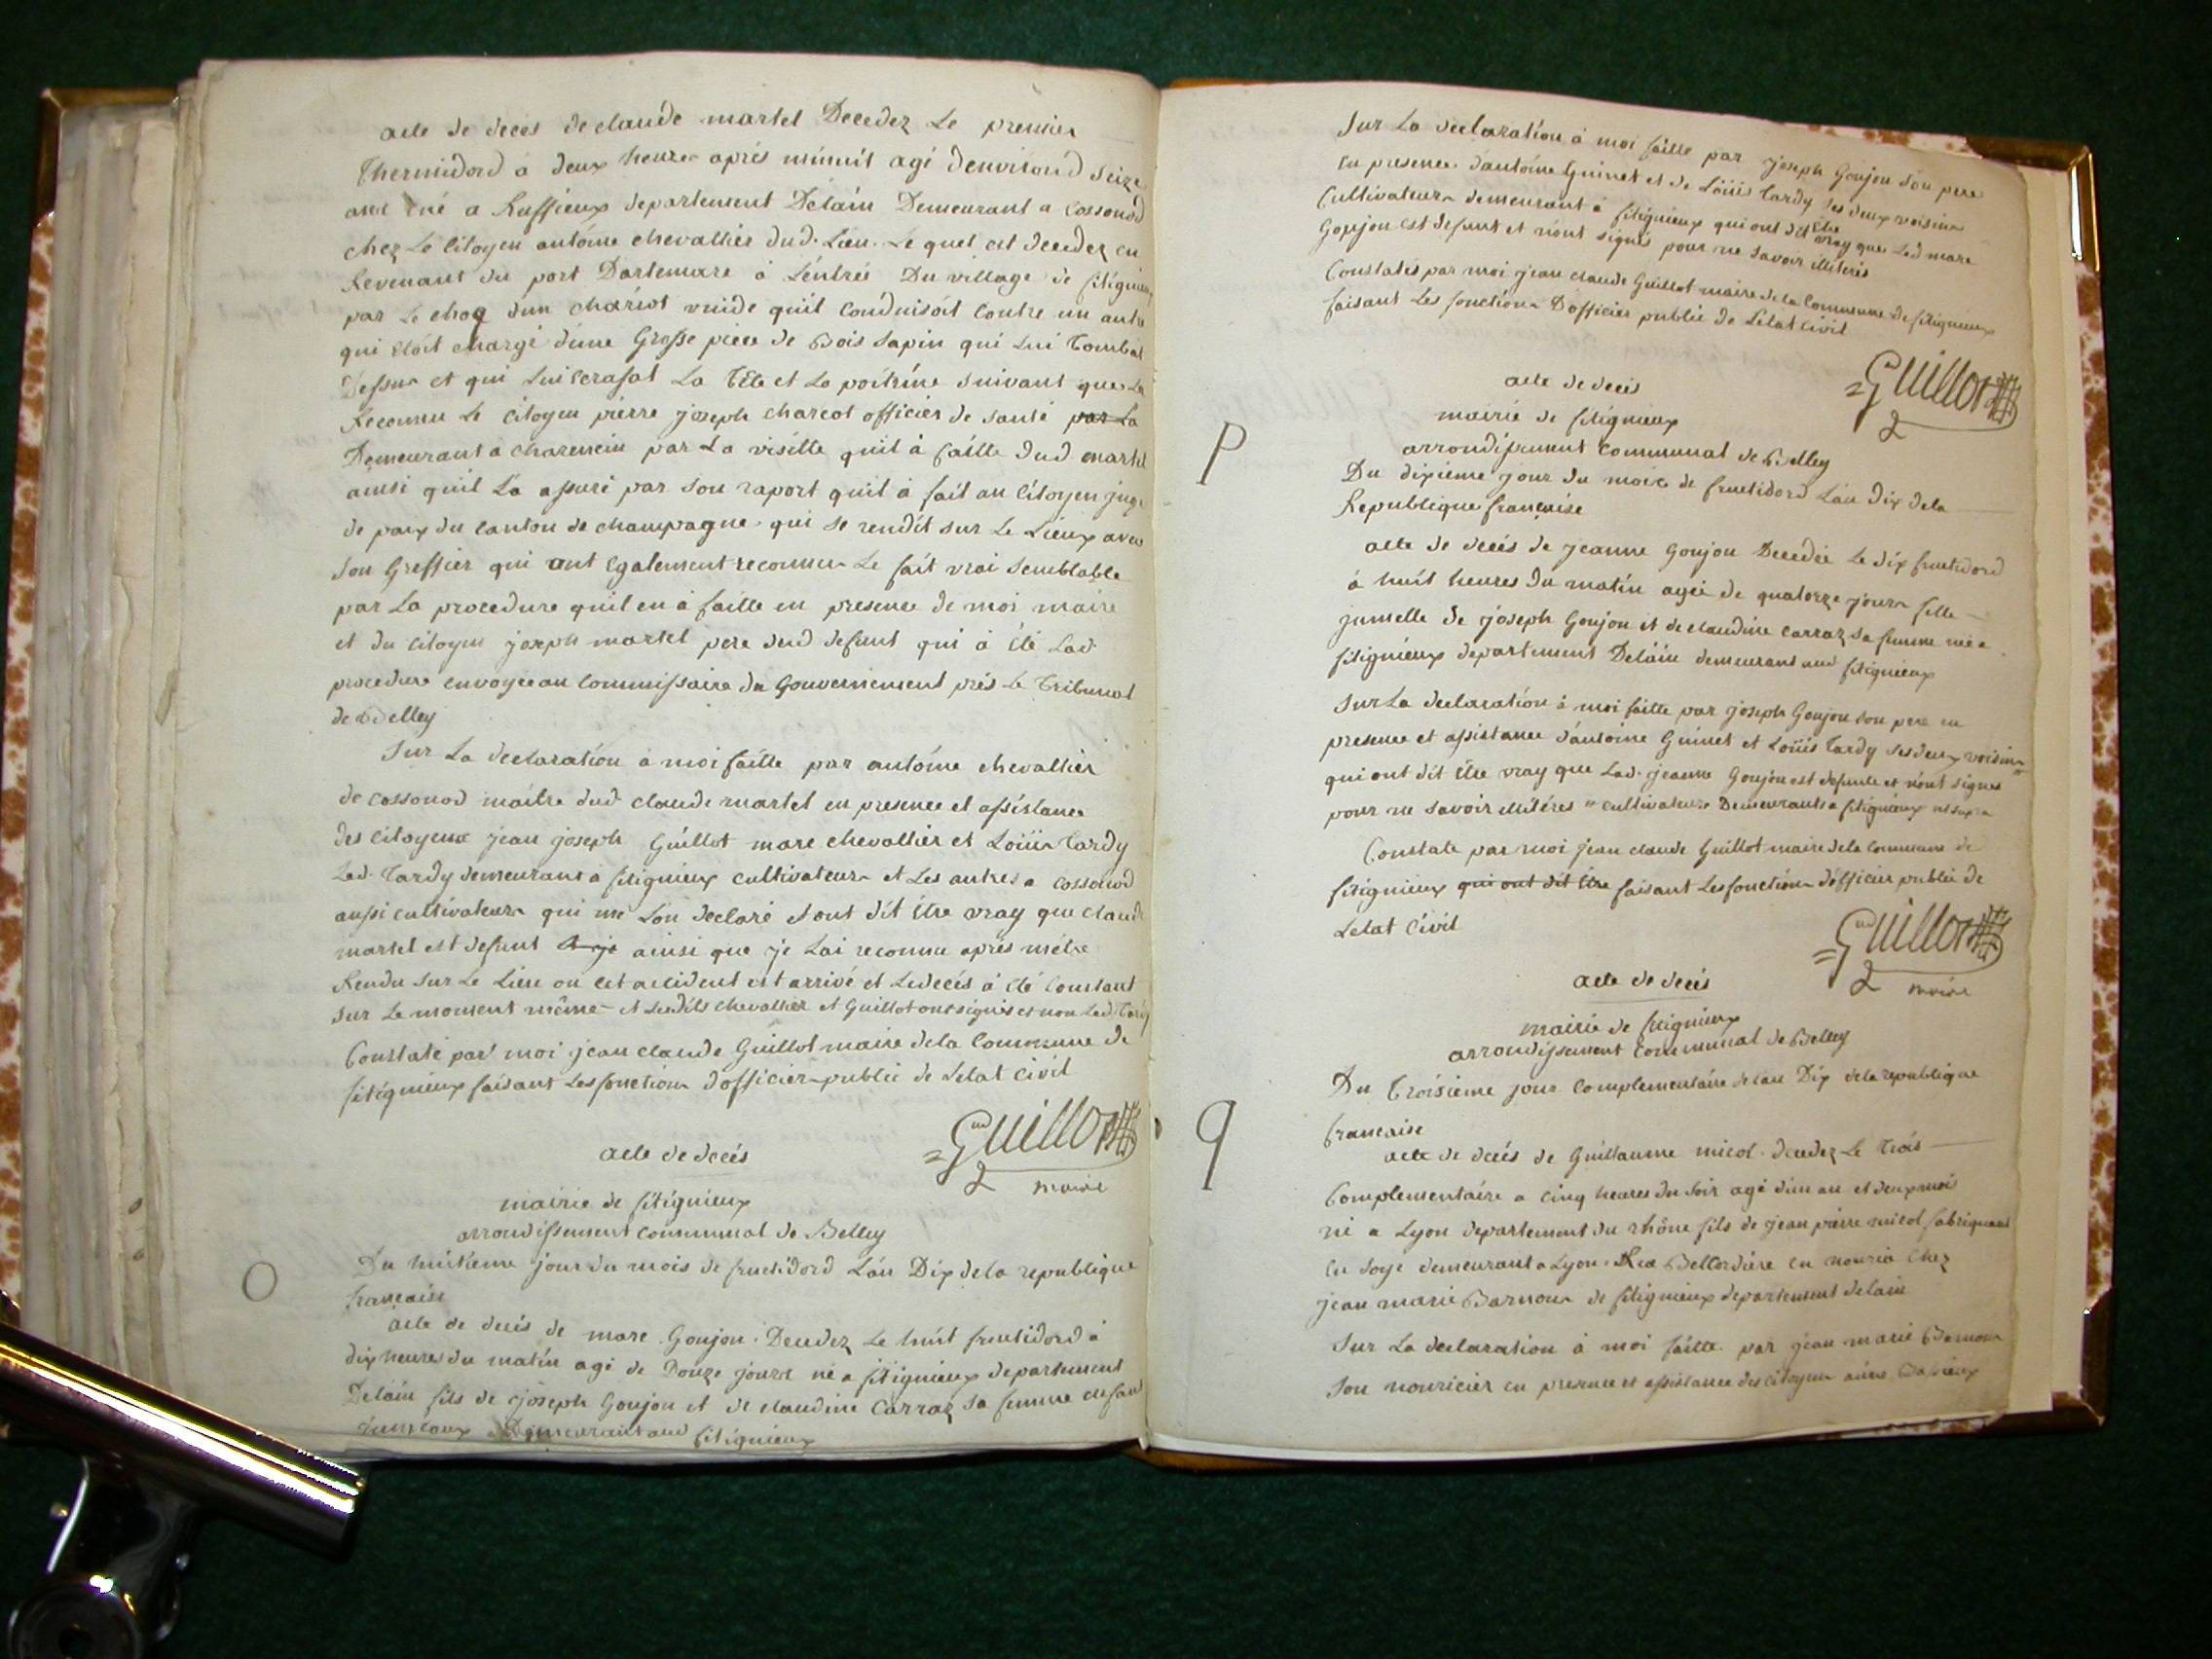 acte de deces de claude martel Decedez Le premier
Thermidord à deux heures aprés minuit agé denvirond seize
ans né a Ruffieux departement Delain Demeurant a Cossonod
chez Le Citoyen antoine chevallier dud. Lieu. Le quel est decedez en
Revenant du port Dartemare à Léntrée Du village de fitignieux
par Le choq dun chariot vuide quil Conduisoit Contre un autre
qui étoit chargé dúne Grosse piece de Bois Sapin qui Lui Tombat
Dessus et qui Lui Ecrasat La Tête et La poitrine suivant que La
Reconnu Le Citoyen pierre joseph charcot officier de santé par La
Demeurant a charencin par La visitte quil à faitte dud martel
ainsi quil La assuré par son raport quil à fait au Citoyen juge
de paix du Canton de champagne qui se rendit sur Le Lieux avec
son Greffier qui ont Egalement reconnu Le fait vrai semblable
par La procedure quil en à faitte en presence de moi maire
et du Citoyen joseph martel pere dud defunt qui à été Lad
procedure envoyée au Commissaire du Gouvernement prés Le Tribunal
de Belley
Sur La declaration à moi faitte par antoine chevallier
de Cossonod maitre dud claude martel en presence et assistance
des Citoyens jean joseph Guillot marc chevallier et Loüis Tardy
Led. Tardy demeurant à fitignieux cultivateur et Les autres a Cossonod
aussi cultivateurs qui me Lon declaré et ont dit être vray que claude
martel est defunt et je ainsi que je Lai reconnu aprés métre
Rendu sur Le Lieu ou cet accident est arrivé et Le decés à été Constant
sur Le moment même et Lesdits chevallier et Guillot ont signés et non Led Tardy
Constaté par moi jean claude Guillot maire dela Commune de
fitignieux faisant Les fonctions dofficier public de Létat Civil
Guillot
maire
acte de decés
mairie de fitignieux
arrondissement communal de Belley
O
Du huitieme jour du mois de fructidord Lán Dix dela republique
francaise
acte de decés de marc Goujon Decedez Le huit fructidord à
dix heures du matin agé de Douze jours né a fitignieux departement
Delain fils de joseph Goujon et de claudine Carraz sa femme enfant
jumeaux Demeurant aud fitignieux
Sur La declaration à moi faitte par joseph Goujon son pere
en presence dantoine Guinet et de Loüis Tardy ses deux voisins
Cultivateurs demeurant à fitignieux qui ont dit être vray que Led marc
Goujon est defunt et nónt signés pour ne savoir illiterés
Constatés par moi jean claude Guillot maire de la Commune de fitignieux
faisant Les fonctions Dofficier public de Letat Civil
Guillot
acte de decés
mairie de fitignieux
P
arrondissement Communal de Belley
Du dixieme jour du mois de fructidord Lán Dix dela
Republique française
acte de decés de jeanne Goujon Decedée Le dix fructidord
à huit heures du matin agée de quatorze jours fille
jumelle de joseph Goujon et de claudine Carraz sa femme née a
fitignieux departement Delain demeurant aud fitignieux
Sur La declaration à moi faitte par joseph Goujon son pere en
presence et assistance dántoine Guinet et Loüis Tardy ses deux voisins
qui ont dit être vray que Lad. jeanne Goujon est defunte et nónt signes
pour ne savoir illitéres " cultivateurs Demeurants a fitignieux
Constaté par moi jean claude Guillot maire dela Commune de
fitignieux qui ont dit être faisant Les fonctions dofficier public de
Letat Civil
Guillot
maire
acte de decés
mairie de fitignieux
arrondissement Communal de Belley
Du Troisieme jour Complementaire de lan Dix dela republique
q
francaise
acte de decés de Guillaume micol decedez Le trois
Complementaire a cinq heures du soir agé dún an et deux mois
né a Lyon departement du rhône fils de jean pierre micol fabriquant
en soye demeurant a Lyon Rue Bellordiere en nouria chez
jean marie Barnoux de fitignieux departement delain
Sur La declaration à moi faitte par jean marie Barnoux
son nouricier en presence et assistance des Citoyens